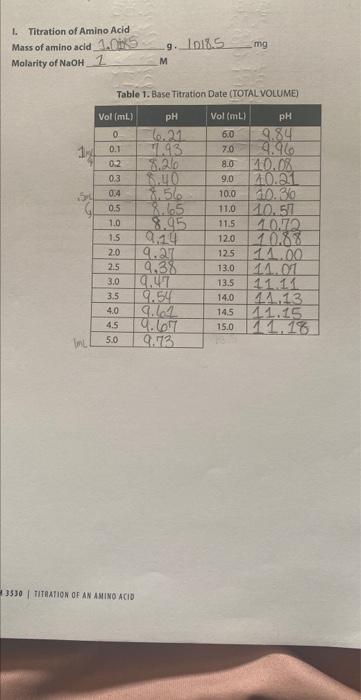 I. Titration of Amino Acid
Mass of amino acid 1.0185 g. 1018.5 mg
Molarity of NaOH 1 M
Table 1. Base Titration Date (TOTAL VOLUME)
Vol (mL) pH Vol (mL) pH
0 6.21 6.0 9.84
0.1 7.93 7.0 9.96
0.2 8.26 8.0 10.08
0.3 8.40 9.0 10.21
0.4 8.56 10.0 10.36
0.5 8.65 11.0 10.57
1.0 8.95 11.5 10.72
1.5 9.14 12.0 10.88
2.0 9.27 12.5 11.00
2.5 9.38 13.0 11.07
3.0 9.47 13.5 11.11
3.5 9.54 14.0 11.13
4.0 9.61 14.5 11.15
4.5 9.67 15.0 11.18
1mL 5.0 9.73
3530 | TITRATION OF AN AMINO ACID